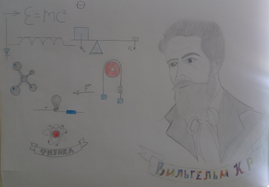 E=mc²
F
ФИЗИКА
ВИЛЬГЕЛЬМ К.Р